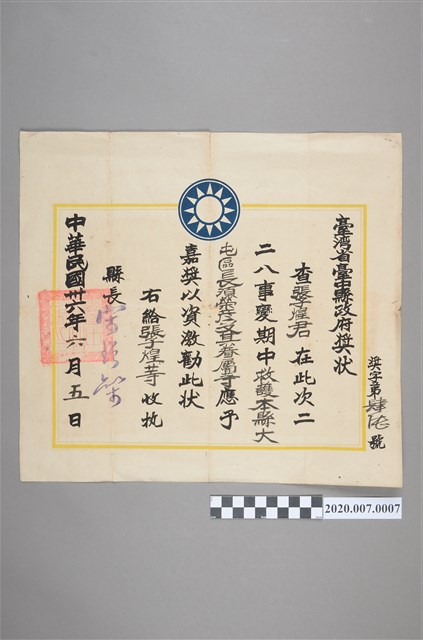 奬字第肆號
臺灣省臺中縣政府奬狀
查張子煌君在此次二
二八事變期中救護本縣大
屯區長及其眷屬等應予
嘉奬以資激勸此狀
右給張子煌等收執
縣長
中華民國卅六年六月五日
2020.007.0007